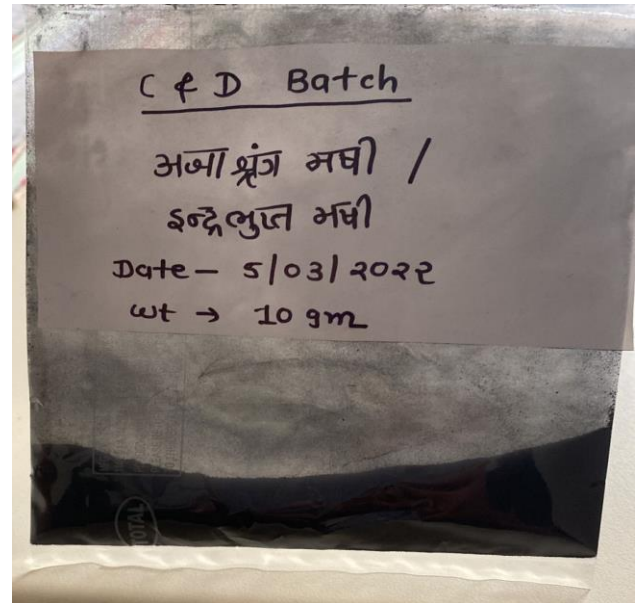 C & D Batch
अजा श्रृंग मषी /
इन्द्रलुप्त मषी
Date - 5/03/२०२२
wt → 10 gm
TOTAL